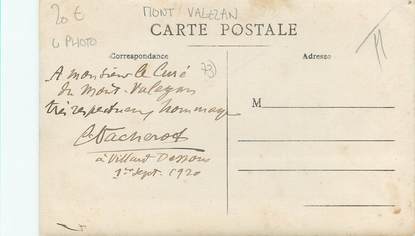 20 €
MONT VALEZAN
CP PHOTO
CARTE POSTALE
Correspondance
Adresse
73)
A monsieur le Curé
du Mont-Valezan
très respectueux hommage
Vacherot
à Villard Dessous
1er Sept. 1920
M